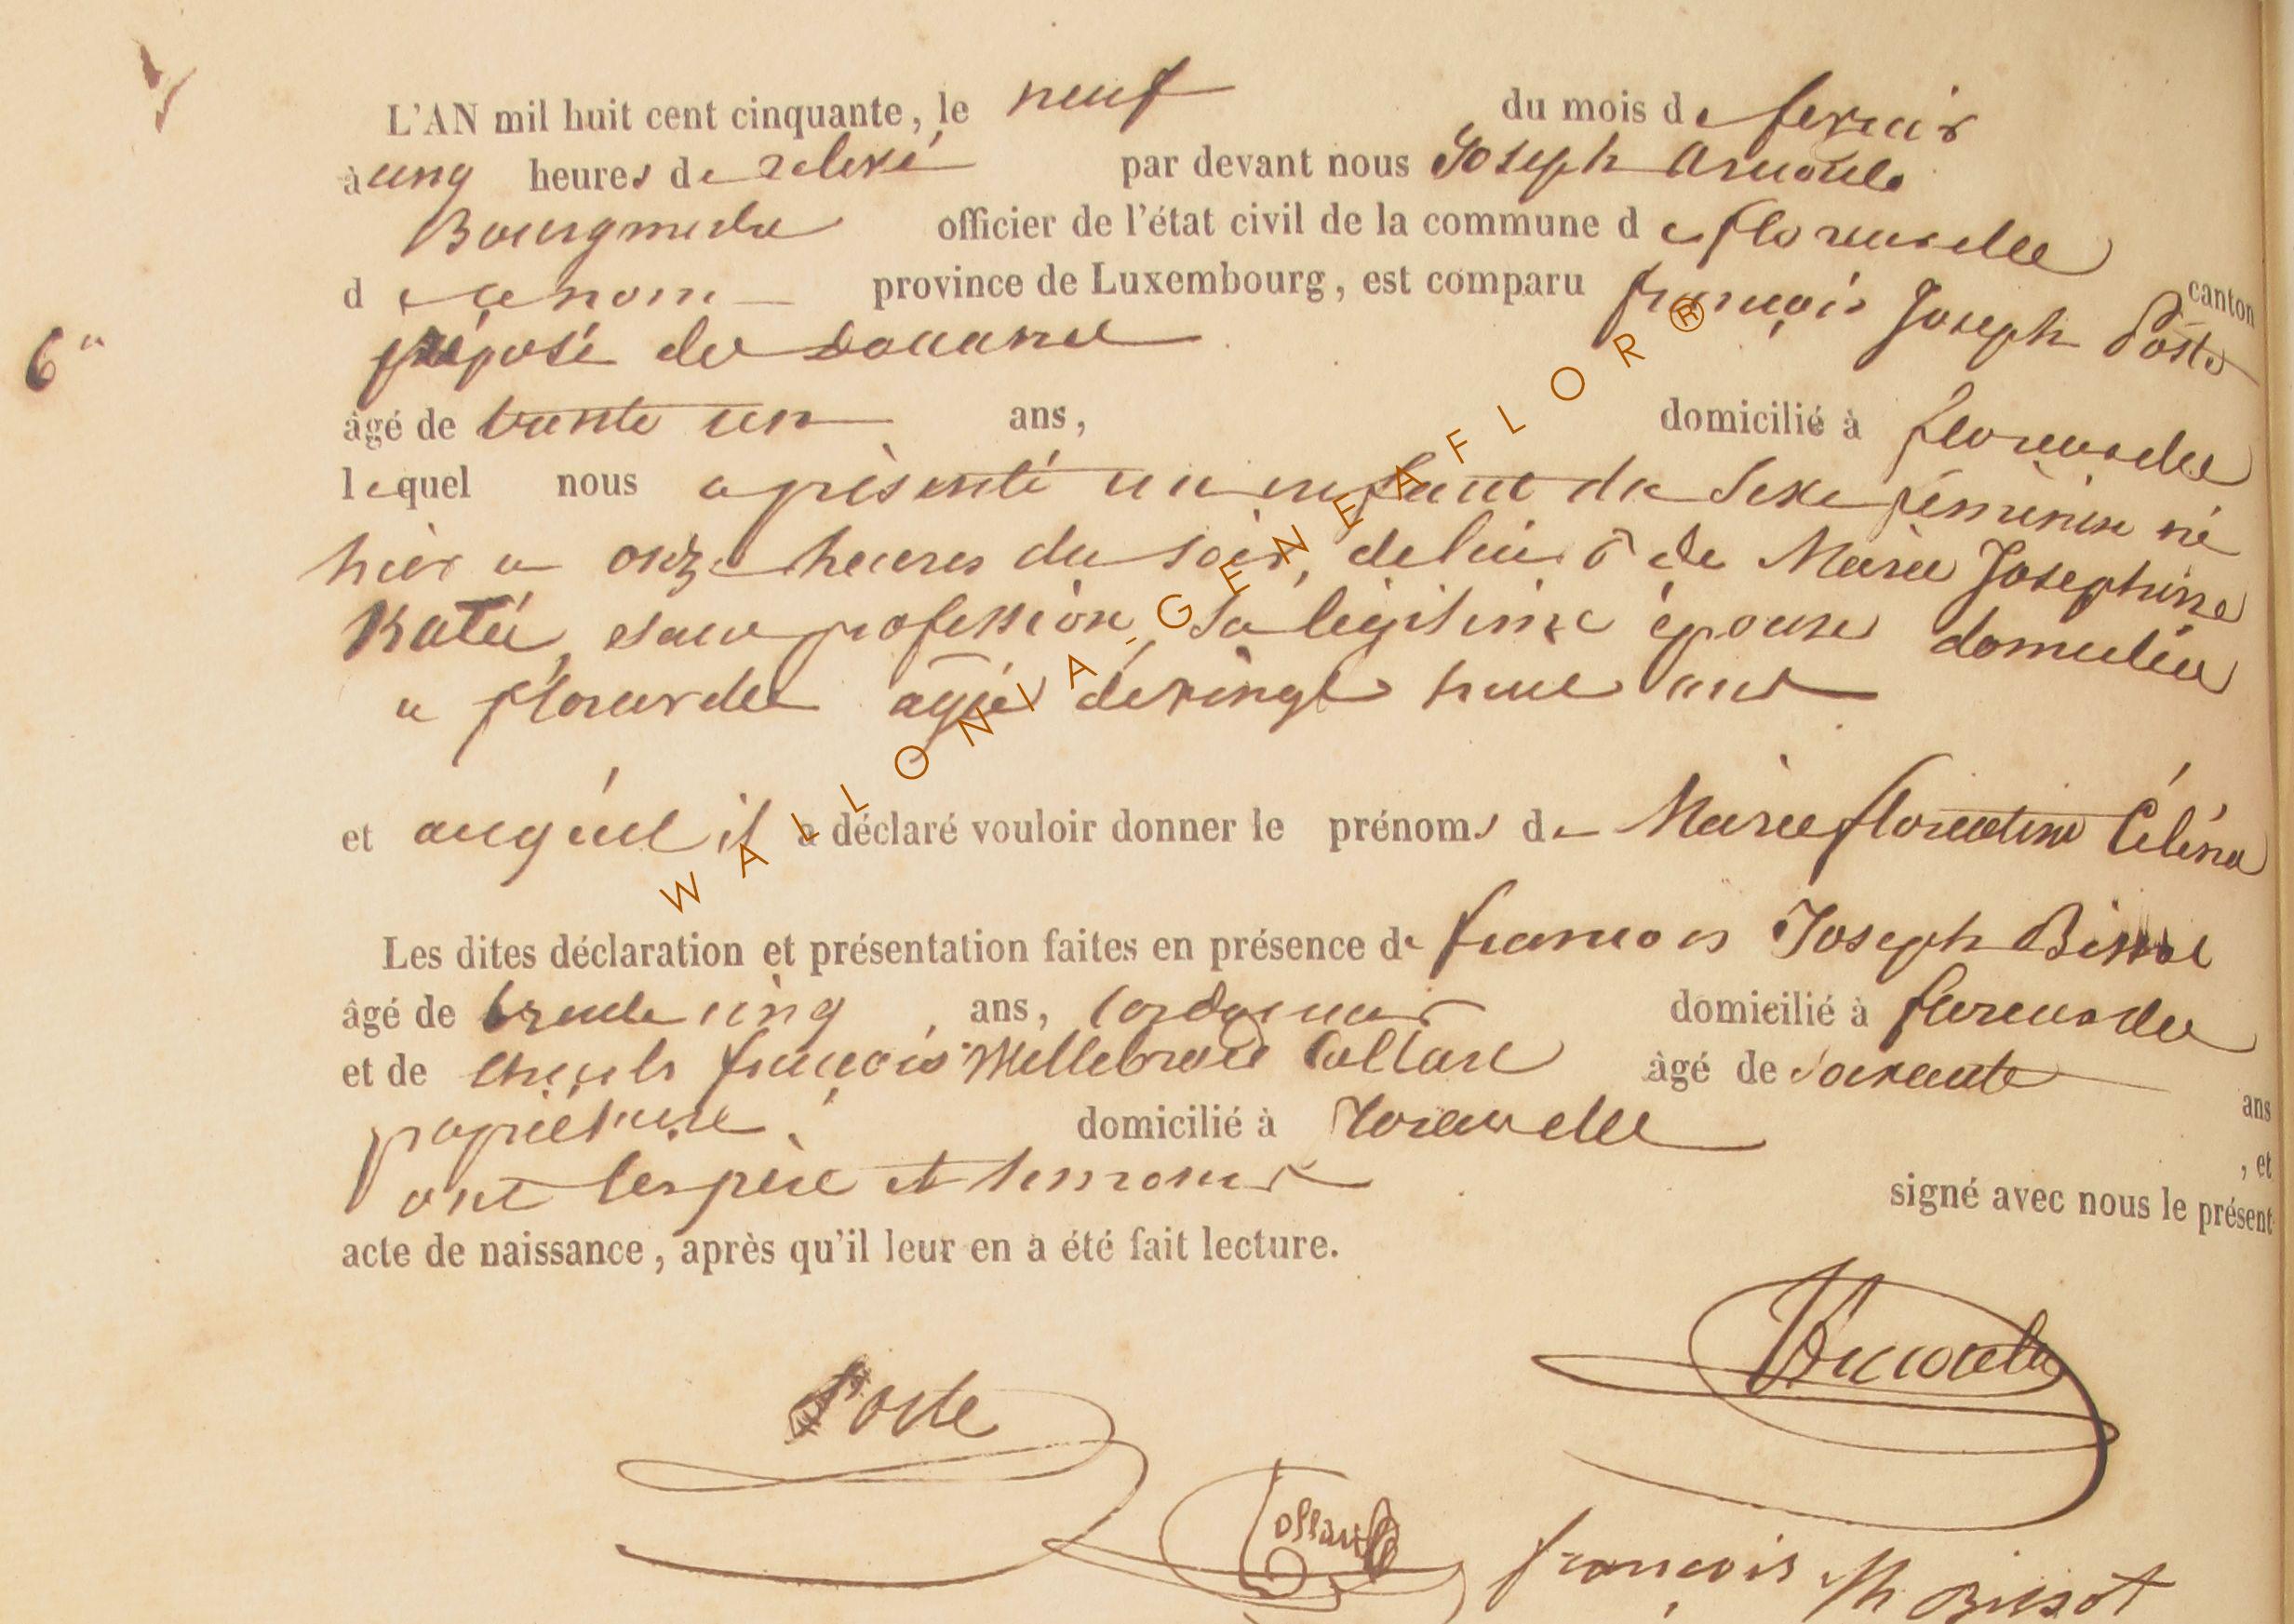 L'AN mil huit cent cinquante, le neuf du mois de fevrier
à cinq heures de relevé par devant nous Joseph Arnould
Bourgmestre officier de l'état civil de la commune de florenville canton
de ce nom province de Luxembourg, est comparu françois Joseph Poste
préposé des Douanes
âgé de trente un ans, domicilié à florenville
lequel nous a présenté un enfant du Sexe féminin né
hier a onze heures du soir, de lui & de Marie Josephine
sans profession, Sa légitime épouse domiciliée
a florenville agée de vingt huit ans
et auquel il a déclaré vouloir donner le prénoms de Marie florentine Célina
Les dites déclaration et présentation faites en présence de françois Joseph Bissot
âgé de trente cinq ans, cordonnier domicilié à florenville
et de françois Willebrord Collard âgé de soixante ans
propriétaire domicilié à florenville, et
ont les père et temoins signé avec nous le présent
acte de naissance, après qu'il leur en a été fait lecture.
6"
Poste
Arnould
Collard
françois Jh Bissot
WALLONIA-GENEAFLOR®